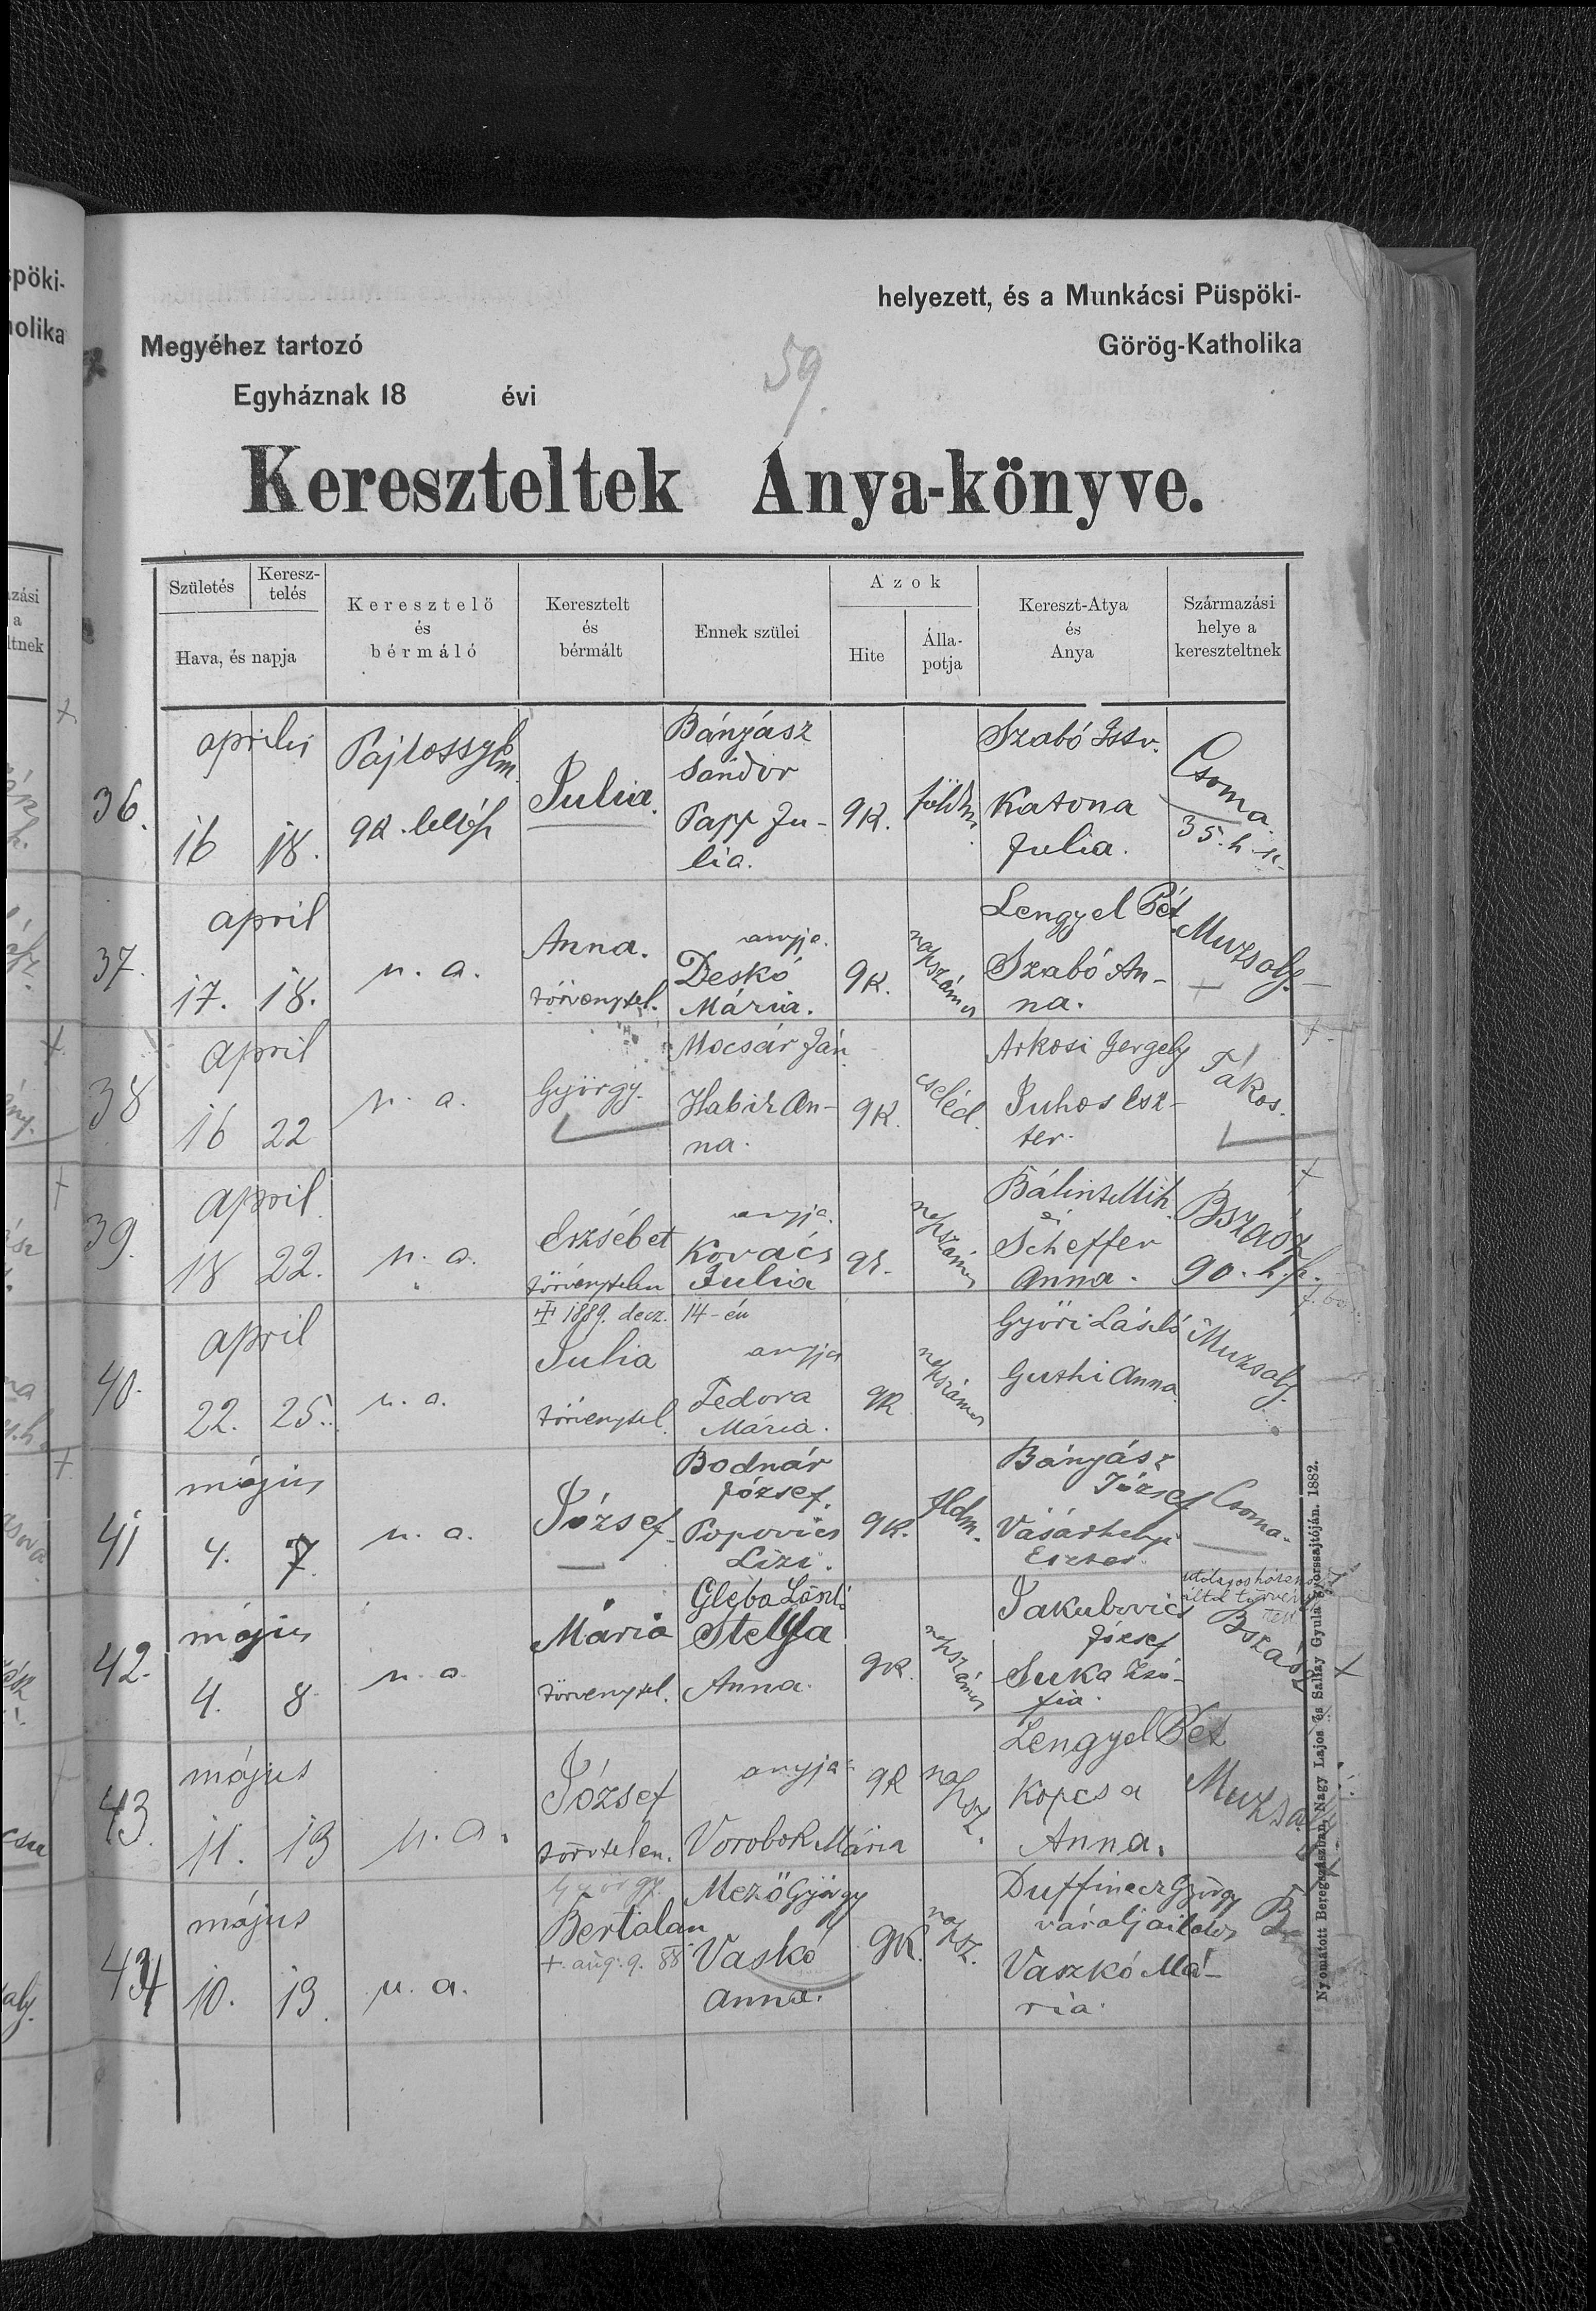 helyezett, és a Munkácsi Püspöki-
Megyéhez tartozó
Görög-Katholika
Egyháznak 18 évi
59.
Kereszteltek Anya-könyve.
Születés
Keresz-
telés
Hava, és napja
Keresztelő
és
bérmáló
Keresztelt
és
bérmált
Ennek szülei
Azok
Hite
Álla-
potja
Kereszt-Atya
és
Anya
Származási
helye a
kereszteltnek
36.
április
16 18.
gk. lelkész
Julia.
Bányász
Sándor
Papp Ju-
lia.
gk.
földm.
Szabó Istv.
Katona
Julia.
Csoma.
35. h. sz.
37.
april
17. 18.
u. a.
Anna.
törvenytel.
anyja.
Deskó
Mária.
gk.
napszámos
Lengyel Pét.
Szabó An-
na.
Muzsaly.
38
april
16 22
u. a.
György.
Mocsár Ján
Habir An-
na.
gk.
cseléd.
Arkosi Gergely
Juhos Esz-
ter.
Tákos.
39.
april
18 22.
u. a.
Erzsébet
törvénytelen
anyja.
Kovács
Julia
gk.
napszámos
Bálint Mih.
és
Scheffer
Anna.
Bszász
90. h.
40.
april
22. 25.
u. a.
‡ 1889. decz. 14-én
Julia
törvenytel.
anyja
Fedora
Mária.
gk
napszámos
Győri László
Guthi Anna
Muzsaly.
41
május
4. 7.
u. a.
József
Bodnár
József.
Popovics
Lizi.
gk.
fldm.
Bányász
József
Vásárhelyi
Eszter.
Csoma.
42.
május
4. 8
u. a
Mária
törvenytel.
Gleba László
Stefa
Anna.
gk.
napszámos
Jakubovics
József
Suka Zsó-
fia.
Bszász
43.
május
11. 13
u. a.
József
törvtelen.
anyja
Vorobok Mária
gk
napsz.
Lengyel Pét
Kopcsa
Anna.
Muzsaly
44
május
10. 13.
u. a.
György
Bertalan
+. aug. 9. 88
Mező György
Vaskó
Anna.
gk.
napsz.
Duffinecz György
váraljai lakos
Vaszkó Má-
ria.
B
Nyomatott Beregszászban, Nagy Lajos és Sallay Gyula gyorssajtóján. 1882.